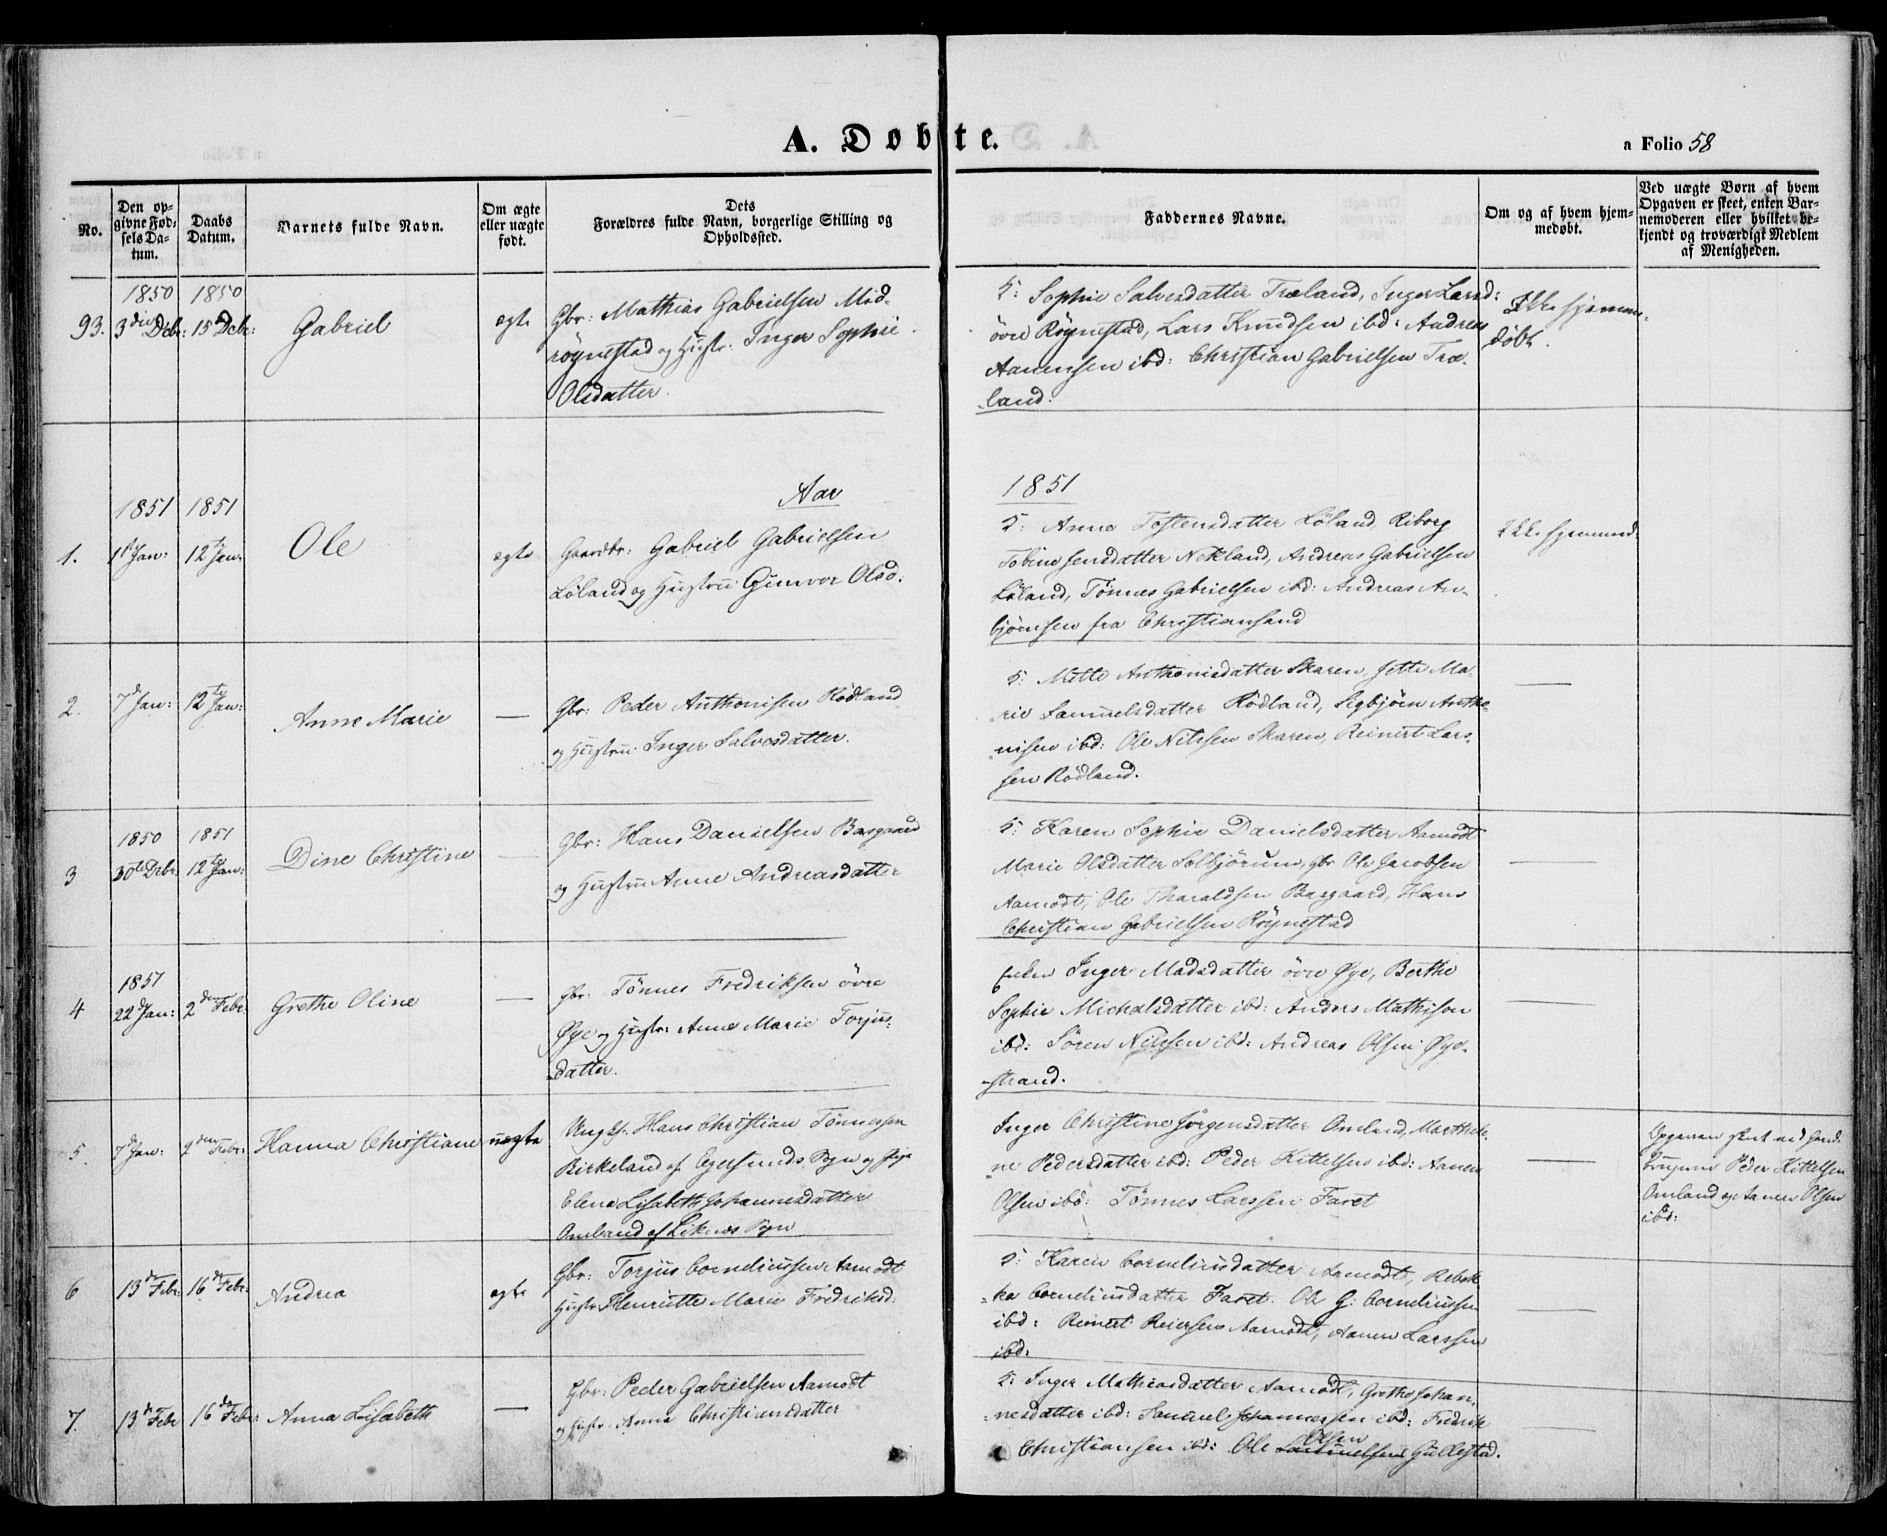 A. Døbte.
a Folio 58
No.
Den op-
givne Fød-
sels Da-
tum.
Daabs
Datum.
Barnets fulde Navn.
Om ægte
eller uægte
født.
Dets
Forældres fulde Navn, borgerlige Stilling og
Opholdssted.
Faddernes Navne.
Om og af hvem hjem-
medøbt.
Ved uægte Børn af hvem
Opgaven er skeet, enten Bar-
nemoderen eller hvilket be-
kjendt og troværdigt Medlem
af Menigheden.
1850 1850
93. 3die Debr: 15d Debr: Gabriel ægte
Gbr: Mathias Gabrielsen Mid-
røynestad og Hustr. Inger Sophie
Olsdatter.
5: Sophie Salvesdatter Træland, Inger Larsd:
övre Röynestad, Lars Knudsen ibd: Andreas
Aanensen ibd: Christian Gabrielsen Træ-
land.
Ikke hjemme-
døbt.
Aar 1851
1851 1851
1. 1st Jan: 12te Jan: Ole ægte
Gaardbr: Gabriel Gabrielsen
Løland og Hustru Gunvor Olsd.
5: Anne Tostensdatter Løland, Riborg
Tobine Jensdatter Nekland, Andreas Gabrielsen
Løland, Tønnes Gabrielsen ibd: Andreas An-
bjørnsen fra Christiansand
Ikke hjemmed:
2. 7d Jan: 12te Jan: Anne Marie —
Gbr: Peder Anthonisen Rödland
og Hustru Inger Salvesdatter.
5: Mette Anthonisdatter Skaren, Jette Ma-
rie Samuelsdatter Rödland, Sigbjörn Antho-
nisen ibd: Ole Nilssen Skaren, Reinert Lars-
sen Rödland.
—
1850 1851
3 30te Debr: 12te Jan: Dine Christine —
Gbr: Hans Danielsen Basgaard
og Hustru Anne Andreasdatter
5: Karen Sophie Danielsdatter Aamodt
Marie Olsdatter Solbjörum, gbr Ole Jacobsen
Aamodt, Ole Tharaldsen Basgaard, Hans
Christian Gabrielsen Röynestad
—
1851
4 22d Jan: 2den Febr: Grethe Oline —
Gbr: Tönnes Fredriksen övre
Øye og Hustr: Anne Marie Torjus-
datter.
Enken Inger Madsdatter övre Øye, Berthe
Sophie Michalsdatter ibd: Anders Mathisen
ibd: Sören Nilssen ibd: Andreas Olsen Øye-
strand.
—
5. 7d Jan: 9den Febr: Hanna Christiane uægte
Ungk. Hans Christian Tönnessen
Birkeland af Egersunds Pgn og Pige
Elena Lisabeth Johannesdatter
Omland af Liknes Pgn
Inger Christine Jörgensdatter Omland, Marthe-
ne Pedersdatter ibd: Peder Kittelsen ibd: Aanen
Olsen ibd: Tönnes Larssen Faret
—
Opgaven skeet ved
Peder Kittelsen
Omland og Aanen Olsen
ibd:
6 13d Febr: 16d Febr: Andrea ægte
Gbr: Torjus Corneliussen Aamodt
Hustr Henriette Marie Fredriksd:
5: Karen Corneliusdatter Aamodt, Rebek-
ka Corneliusdatter Faret. Ole G: Corneliussen
ibd: Reinert Reiersen Aamodt, Aanen Larssen
ibd:
—
7. 13d Febr 16d Febr: Anna Lisabeth —
Gbr: Peder Gabrielsen Aamodt
og Hustr. Anna Christiansdatter
5: Inger Mathiasdatter Aamodt, Grethe Johan-
nesdatter ibd: Samuel Johannessen ibd: Fredrik
Olsen
Christiansen ibd: Ole Samuelsen Gullestad.
—